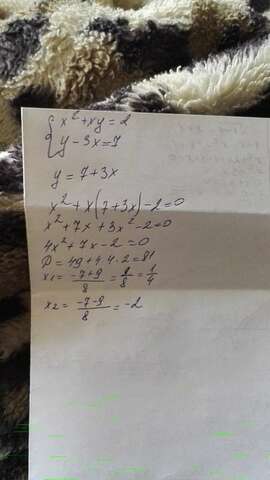 { x² + xy = 2
y - 3x = 7
y = 7 + 3x
x² + x(7 + 3x) - 2 = 0
x² + 7x + 3x² - 2 = 0
4x² + 7x - 2 = 0
D = 49 + 4·4·2 = 81
x₁ = (-7+9)/8 = 2/8 = 1/4
x₂ = (-7-9)/8 = -2